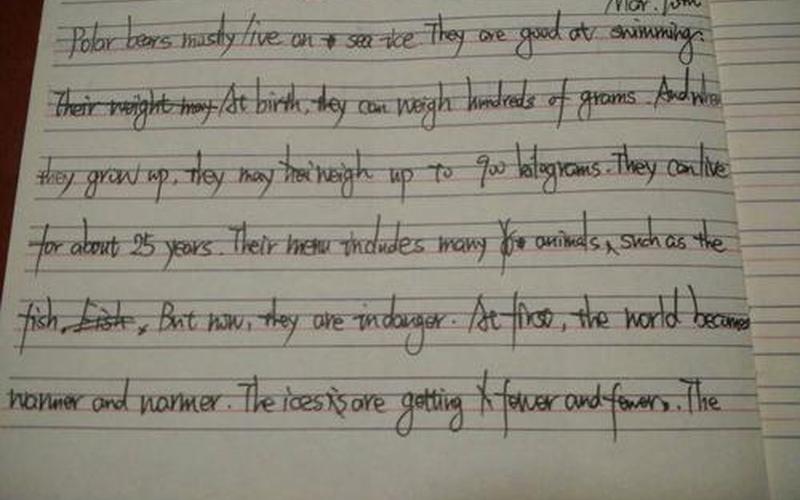 Polar bears mostly live on sea ice They are good at swimming.
Their weight may At birth, they can weigh hundreds of grams. And when
they grow up, they may weigh up to 900 kilograms. They can live
for about 25 years. Their menu includes many animals, such as the
fish, fish, But now, they are in danger. At first, the world becomes
warmer and warmer. The ices are getting fewer and fewer. The